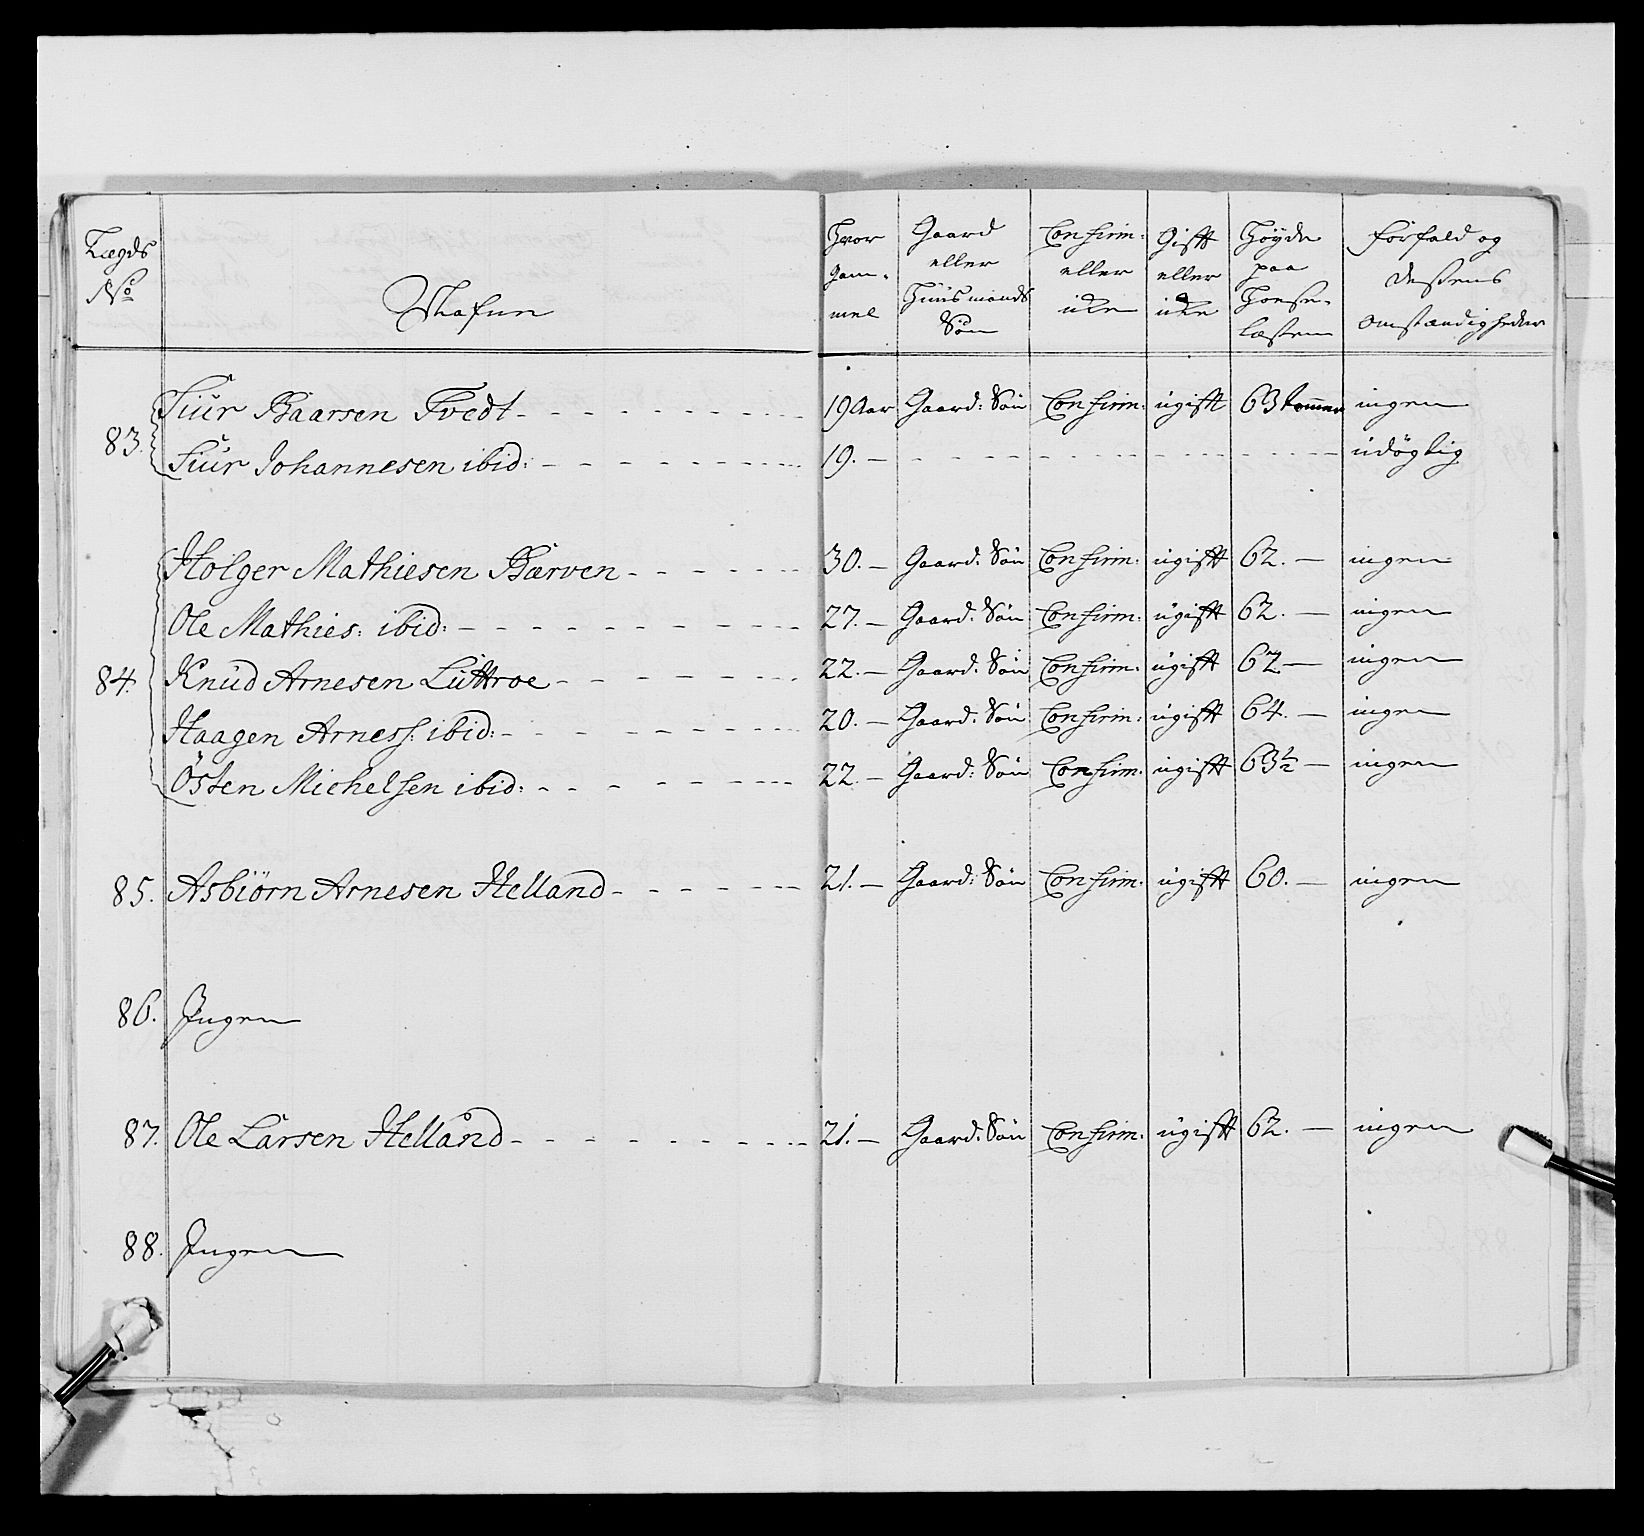 Lægds No | Nafne | Hvor gammel | Gaard eller Huusmands Søn | Confirm: eller icke | Gift eller icke | Høyde paa Hosse-læsten | forfald og deßens omstændigheder
83. Siur Baarsen Tvedt - - - 19 Aar Gaard: Søn Confirm: ugift 63 tommer ingen
Siur Johannesen ibid: - - - 19. - - - - udøgtig
84. Holger Mathiesen Bærven - - - 30. - Gaard: Søn Confirm: ugift 62. - ingen
Ole Mathies: ibid: - - - 27. - Gaard: Søn Confirm: ugift 62. - ingen
Knud Arnesen Luttroe - - - 22. - Gaard: Søn Confirm: ugift 62 - ingen
Haagen Arness: ibid: - - - 20. - Gaard: Søn Confirm: ugift 64. - ingen
Östen Michelsen ibid: - - - 22 - Gaard: Søn Confirm: ugift 63½ - ingen
85. Asbiörn Arnesen Helland - - - 21. - Gaard: Søn Confirm: ugift 60. - ingen
86. Ingen
87. Ole Larsen Helland - - - 21. - Gaard: Søn Confirm: ugift 62. - ingen
88. Ingen